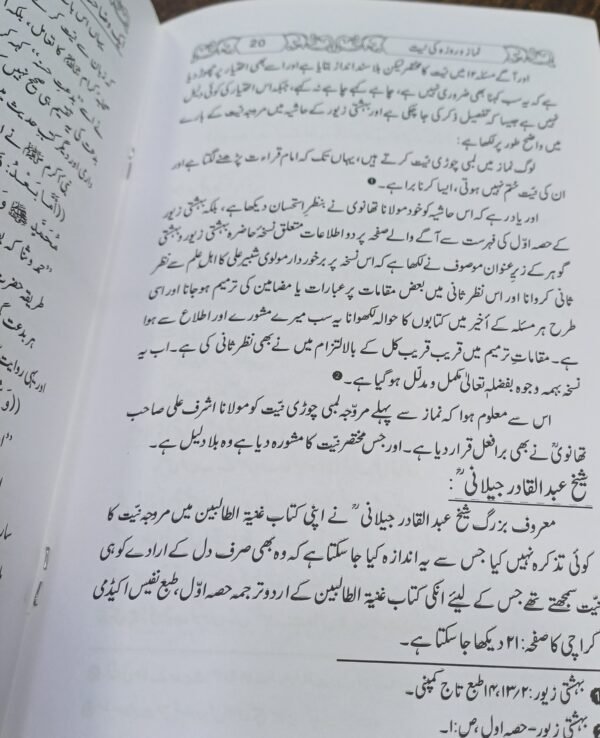 نماز و روزہ کی نیت
20
اور آگے مسئلہ ۱۲ میں نیت کا مختصر لیکن بلا سند انداز بتایا ہے اور اسے بھی اختیار پر چھوڑ دیا
ہے کہ یہ سب کہنا بھی ضروری نہیں ہے، چاہے کہے چاہے نہ کہے، جبکہ اس اختیار کی کوئی دلیل
نہیں ہے جیسا کہ تفصیل ذکر کی جا چکی ہے اور بہشتی زیور کے حاشیہ میں مروجہ نیت کے بارے
میں واضح طور پر لکھا ہے:
لوگ نماز میں لمبی چوڑی نیت کرتے ہیں، یہاں تک کہ امام قراءت پڑھنے لگتا ہے اور
ان کی نیت ختم نہیں ہوتی، ایسا کرنا برا ہے۔
اور یاد رہے کہ اس حاشیہ کو خود مولانا تھانوی نے بنظرِ استحسان دیکھا ہے، بلکہ بہشتی زیور
کے حصہ اوّل کی فہرست سے آگے والے صفحہ پر دو اطلاعات متعلق نسخۂ حاضرہ بہشتی زیور و بہشتی
گوہر کے زیرِ عنوان موصوف نے لکھا ہے کہ اس نسخہ پر برخوردار مولوی شبیر علی کا اہل علم سے نظر
ثانی کروانا اور اس نظر ثانی میں بعض مقامات پر عبارات یا مضامین کی ترمیم ہو جانا اور اسی
طرح ہر مسئلہ کے اخیر میں کتابوں کا حوالہ لکھوانا یہ سب میرے مشورے اور اطلاع سے ہوا
ہے۔ مقاماتِ ترمیم میں قریب قریب کل کے بالالتزام میں نے بھی نظر ثانی کی ہے۔ اب یہ
نسخہ بہمہ وجوہ بفضلہ تعالیٰ مکمل و مدلّل ہو گیا ہے۔
اس سے معلوم ہوا کہ نماز سے پہلے مروّجہ لمبی چوڑی نیت کو مولانا اشرف علی صاحب
تھانویؒ نے بھی برا فعل قرار دیا ہے۔ اور جس مختصر نیت کا مشورہ دیا ہے وہ بلا دلیل ہے۔
شیخ عبد القادر جیلانیؒ:
معروف بزرگ شیخ عبد القادر جیلانیؒ نے اپنی کتاب غنیۃ الطالبین میں مروجہ نیت کا
کوئی تذکرہ نہیں کیا جس سے یہ اندازہ کیا جا سکتا ہے کہ وہ بھی صرف دل کے ارادے کو ہی
نیت سمجھتے تھے جس کے لیئے انکی کتاب غنیۃ الطالبین کے اردو ترجمہ حصہ اوّل، طبع نفیس اکیڈمی
کراچی کا صفحہ: ۲۱ دیکھا جا سکتا ہے۔
بہشتی زیور: ۱۴،۱۳/۲ طبع تاج کمپنی۔
بہشتی زیور – حصہ اول، ص:۱۔